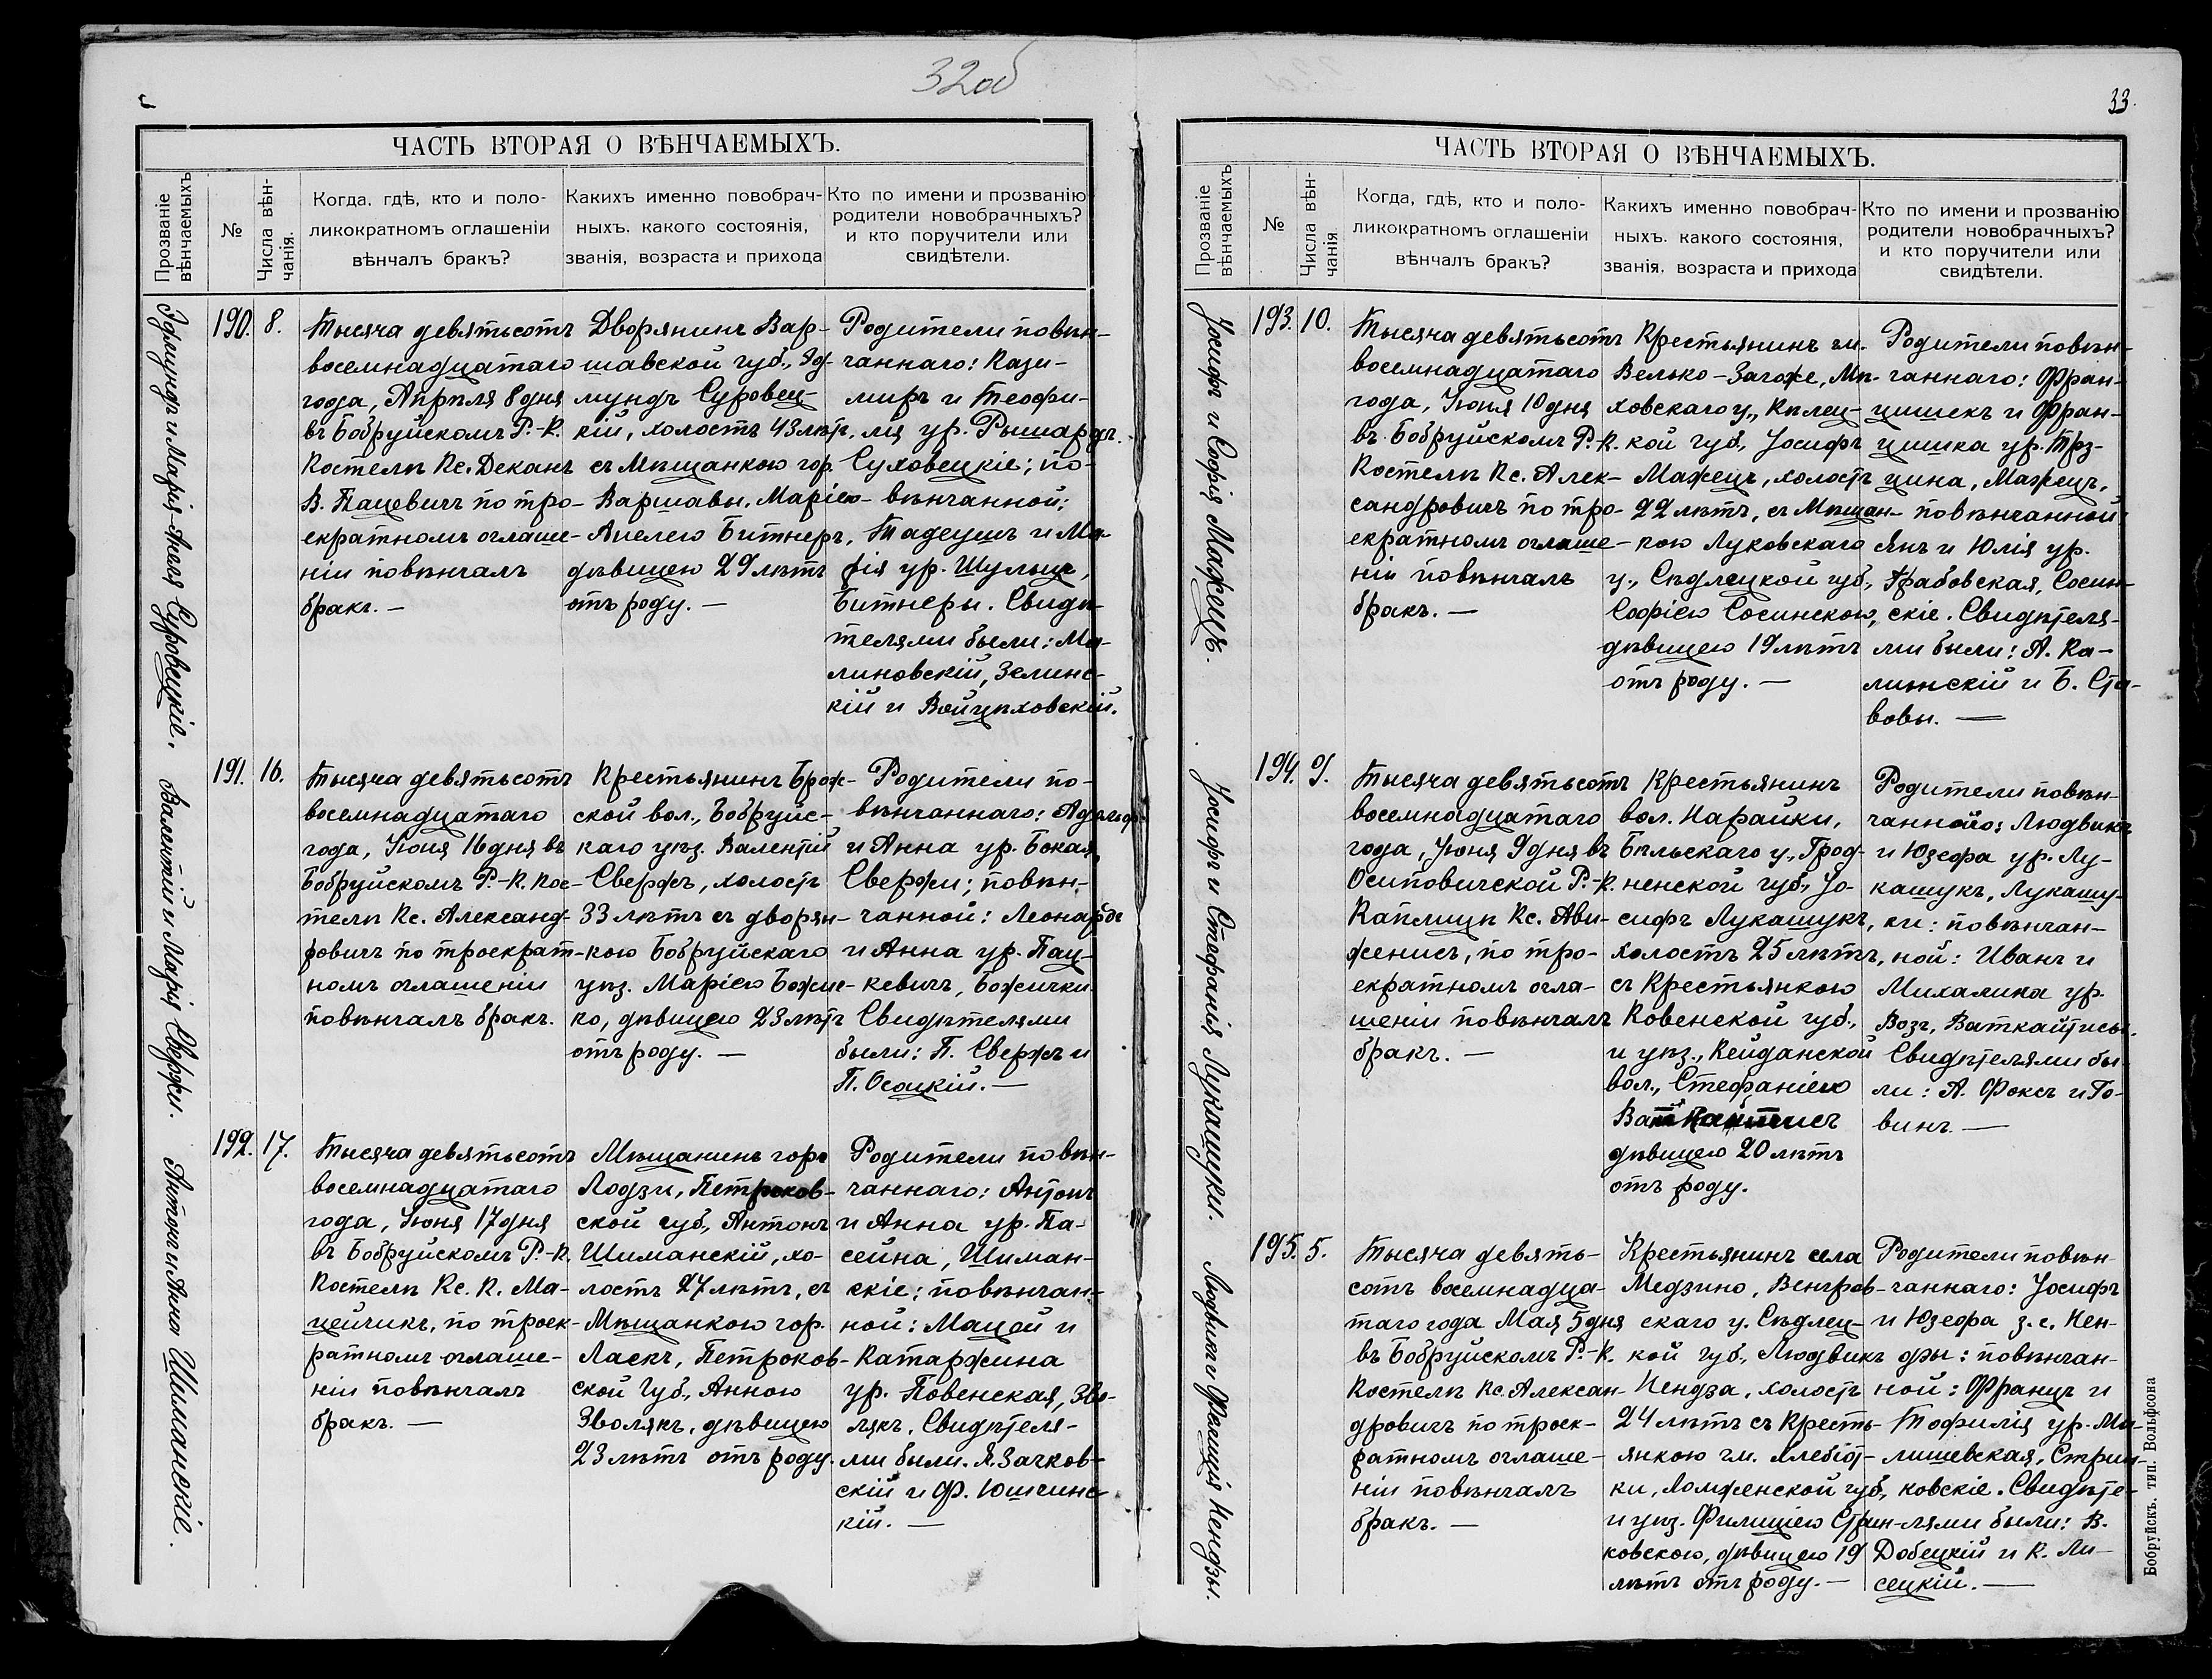 32об
ЧАСТЬ ВТОРАЯ О ВѢНЧАЕМЫХЪ.
Прозваніе вѣнчаемыхъ
№
Числа вѣнчанія.
Когда, гдѣ, кто и поло-
ликократномъ оглашеніи
вѣнчалъ бракъ?
Какихъ именно повобрач-
ныхъ. какого состоянія,
званія, возраста и прихода
Кто по имени и прозванію
родители новобрачныхъ?
и кто поручители или
свидѣтели.
Эдмундъ и Марія-Анеля Суровецкіе.
190.
8.
Тысяча девятьсотъ
восемнадцатаго
года, Апрѣля 8 дня
въ Бобруйскомъ Р.-К.
Костелѣ Кс. Деканъ
В. Пацевичъ по тро-
екратномъ оглаше-
ніи повѣнчалъ
бракъ. —
Дворянинъ Вар-
шавской губ., Эд-
мундъ Суровец-
кій, холостъ 43 лѣтъ,
съ Мѣщанкою гор.
Варшавы, Маріею-
Анелею Битнеръ,
дѣвицею 29 лѣтъ
отъ роду. —
Родители повѣн-
чаннаго: Кази-
миръ и Теофи-
лія ур. Рышардъ.
Суховецкіе; по-
вѣнчанной:
Тадеушъ и Ма-
рія ур. Шульцъ,
Битнеры. Свидѣ-
телями были: Ма-
линовскій, Зелинс-
кій и Войцѣховскій.
Валентій и Марія Свержи.
191.
16.
Тысяча девятьсотъ
восемнадцатаго
года, Іюня 16 дня въ
Бобруйскомъ Р.-К. Кос-
телѣ Кс. Александ-
ровичъ по троекрат-
номъ оглашеніи
повѣнчалъ бракъ.
Крестьянинъ Брож-
ской вол., Бобруйс-
каго уѣз. Валентій
Свержъ, холостъ
33 лѣтъ съ дворян-
кою Бобруйскаго
уѣз. Маріею Божич-
ко, дѣвицею 23 лѣтъ
отъ роду. —
Родители по-
вѣнчаннаго: Адольфъ
и Анна ур. Бокая,
Свержи; повѣн-
чанной: Леонардъ
и Анна ур. Пац-
кевичъ, Божички.
Свидѣтелями
были: П. Свержъ и
П. Осацкій. —
Антонъ и Анна Шиманскіе.
192.
17.
Тысяча девятьсотъ
восемнадцатаго
года, Іюня 17 дня
въ Бобруйскомъ Р.-К.
Костелѣ Кс. К. Ма-
цейчикъ, по троек-
ратномъ оглаше-
ніи повѣнчалъ
бракъ. —
Мѣщанинъ гор.
Лодзи, Петроков-
ской губ., Антонъ
Шиманскій, хо-
лостъ 27 лѣтъ, съ
Мѣщанкою гор.
Ласкъ, Петроков-
ской губ., Анною
Зволякъ, дѣвицею
23 лѣтъ отъ роду.
Родители повѣн-
чаннаго: Антонъ
и Анна ур. Па-
сейна, Шиман-
скіе; повѣнчан-
ной: Мацей и
Катаржина
ур. Повенская, Зво-
лякъ. Свидѣтеля-
ми были. Я. Зачков-
скій и Ф. Юшчинс-
кій. —
33.
ЧАСТЬ ВТОРАЯ О ВѢНЧАЕМЫХЪ.
Прозваніе вѣнчаемыхъ
№
Числа вѣнчанія
Когда, гдѣ, кто и поло-
ликократномъ оглашеніи
вѣнчалъ бракъ?
Какихъ именно повобрач-
ныхъ. какого состоянія,
званія, возраста и прихода
Кто по имени и прозванію
родители новобрачныхъ?
и кто поручители или
свидѣтели.
Іосифъ и Софія Мажецъ.
193.
10.
Тысяча девятьсотъ
восемнадцатаго
года, Іюня 10 дня
въ Бобруйскомъ Р.-К.
Костелѣ Кс. Алек-
сандровичъ по тро-
екратномъ оглаше-
ніи повѣнчалъ
бракъ. —
Крестьянинъ гм.
Велько-Загоже, Мѣ-
ховскаго у., Кѣлец-
кой губ., Іосифъ
Мажецъ, холостъ
22 лѣтъ, съ Мѣщан-
кою Луковскаго
у., Сѣдлецкой губ.,
Софіею Сосинскою,
дѣвицею 19 лѣтъ
отъ роду. —
Родители повѣн-
чаннаго: Фран-
цишекъ и Фран-
цишка ур. Трз-
цина, Мажецъ,
повѣнчанной:
Янъ и Юлія ур.
Грабовская, Сосин-
скіе. Свидѣтеля-
ми были: А. Ка-
линскій и Б. Ста-
вовы. —
Іосифъ и Стефанія Лукашуки.
194.
9.
Тысяча девятьсотъ
восемнадцатаго
года, Іюня 9 дня въ
Осиповичской Р.-К.
Каплицѣ Кс. Ави-
женисъ, по тро-
екратномъ огла-
шеніи повѣнчалъ
бракъ. —
Крестьянинъ
вол. Нарайки,
Бѣльскаго у., Грод-
ненской губ., Іо-
сифъ Лукашукъ,
холостъ 25 лѣтъ,
съ Крестьянкою
Ковенской губ.,
и уѣз., Кейданской
вол., Стефаніею
Ваткайтисъ
дѣвицею 20 лѣтъ
отъ роду.
Родители повѣн-
чаннаго: Людвикъ
и Юзефа ур. Лу-
кашукъ, Лукашу-
ки: повѣнчан-
ной: Иванъ и
Михалина ур.
Возг, Ваткайтисы.
Свидѣтелями бы-
ли: А. Фоксъ и Го-
винъ. —
Людвикъ и Фелиція Нендзы.
195.
5.
Тысяча девять-
сотъ восемнадца-
таго года Мая 5 дня
въ Бобруйскомъ Р.-К.
Костелѣ Кс. Алексан-
дровичъ по троек-
ратномъ оглаше-
ніи повѣнчалъ
бракъ. —
Крестьянинъ села
Медзино, Венгров-
скаго у. Сѣдлец-
кой губ., Людвикъ
Нендза, холостъ
24 лѣтъ съ Кресть-
янкою гм. Хлебіот-
ки, Ломженской губ.,
и уѣз. Филиціею Стрин-
ковскою, дѣвицею 19
лѣтъ отъ роду. —
Родители повѣн-
чаннаго: Іосифъ
и Юзефа з. с. Нен-
дзы: повѣнчан-
ной: Францъ и
Тофилія ур. Ми-
лишевская, Стрин-
ковскіе. Свидѣте-
лями были: В.
Добецкій и К. Ли-
сецкій. —
Бобруйскъ. тип. Вольфсона